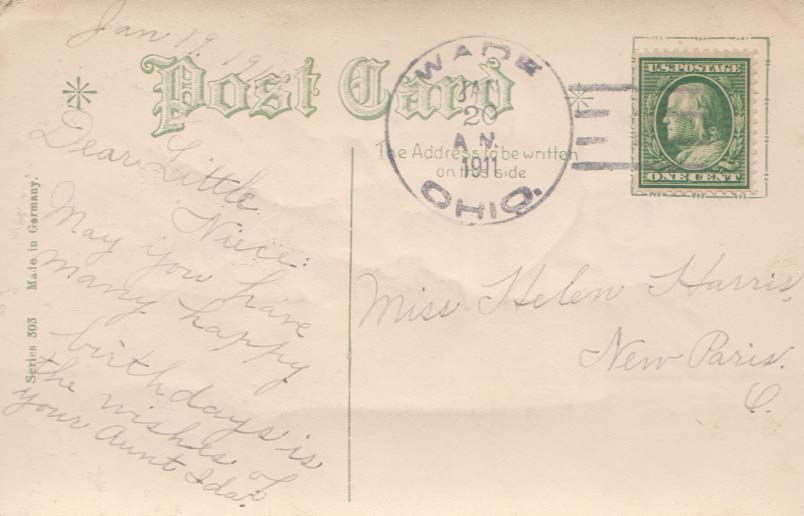 Jan 19, 191
Post Card
WADE
JAN
20
A.M.
1911
OHIO.
U.S. POSTAGE
ONE CENT
The Address to be written
on this side
Dear Little
Niece:
May you have
many happy
birthdays is
the wishes of
your Aunt Ida.
Miss Helen Harris,
New Paris.
O.
Series 303 Made in Germany.